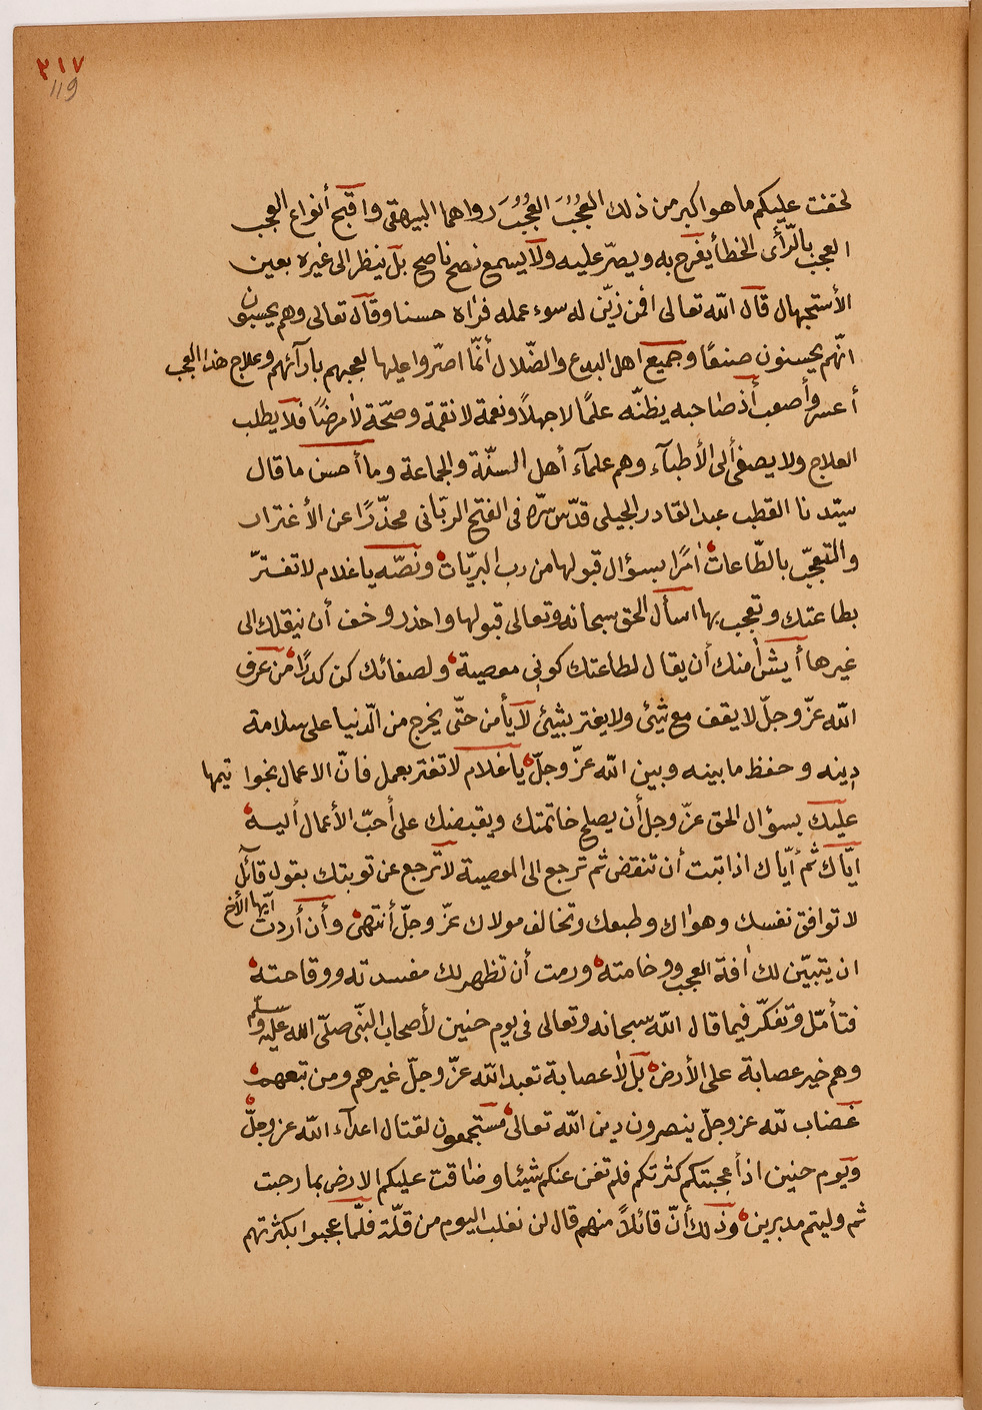 ٣١٧
119
لخفت عليكم ما هو اكبر من ذلك العُجُبَ العُجُبَ رواهما البيهقى واقبح أنواع العجب
العجب بالرّأى الخطأ يفرح به ويصرّ عليه ولا يسمع نصح ناصح بل ينظر الى غيره بعين
الأستجهال قال الله تعالى افمن زيّن له سوء عمله فراه حسنا وقال تعالى وهم يحسبون
انّهم يحسنون صنعًا وجميع اهل البدع والضّلال أنّما اصرّوا عليها لعجبهم بارآئهم وعلاج هذا العجب
أعسر وأصعب أذ صاحبه يظنّه علمًا لا جهلاً ونعمة لا نقمة وصحّة لا مرضًا فلا يطلب
العلاج ولا يصغى ألى الأطبآء وهم علمآء أهل السنّة والجماعة وما أحسن ما قال
سيّدنا القطب عبد القادر الجيلى قدّس سرّه فى الفتح الربّانى محذّرًا عن الأغترار
والتعجّب بالطّاعات امرًا بسؤال قبولها من رب البريّات ونصّه يا غلام لا تغترّ
بطاعتك وتعجب بها اسأل الحق سبحانه وتعالى قبولها واحذر وخف أن ينقلك الى
غيرها أيش امنك أن يقال لطاعتك كونى معصية ولصفائك كن كدرًا من عرف
الله عزّ وجلّ لا يقف مع شئ ولا يغتر بشئ لا يأمن حتّى يخرج من الدّنيا على سلامة
دينه وحفظ ما بينه وبين الله عزّ وجلّ يا غلام لا تغتر بعمل فانّ الاعمال بخواتيمها
عليك بسؤال الحق عزّ وجل أن يصلح خاتمتك ويقبضك على أحبّ الأعمال أليه
ايّاك ثم أيّاك اذا تبت أن تنقض ثم ترجع الى المعصية لا ترجع عن توبتك بقول قآئل
لا توافق نفسك وهواك وطبعك وتخالف مولاك عزّ وجلّ أنتهى وأن أردت أيّها الأخ
ان يتبيّن لك افة العجب ووخامته ورمت أن تظهر لك مفسدته ووقاحته
فتأمّل وتفكّر فيما قال الله سبحانه وتعالى فى يوم حنين لأصحاب النّبى صلّى الله عليه وسلّم
وهم خير عصابة على الأرض بل لا عصابة تعبد الله عزّ وجلّ غيرهم ومن تبعهم
غضاب لله عز وجلّ ينصرون دين الله تعالى مستجمعون لقتال اعدآء الله عز وجلّ
ويوم حنين اذ أعجبتكم كثرتكم فلم تغن عنكم شيئا وضاقت عليكم الارض بما رحبت
ثم وليتم مدبرين وذلك أنّ قائلاً منهم قال لن نغلب اليوم من قلّة فلمّا عجبوا بكثرتهم